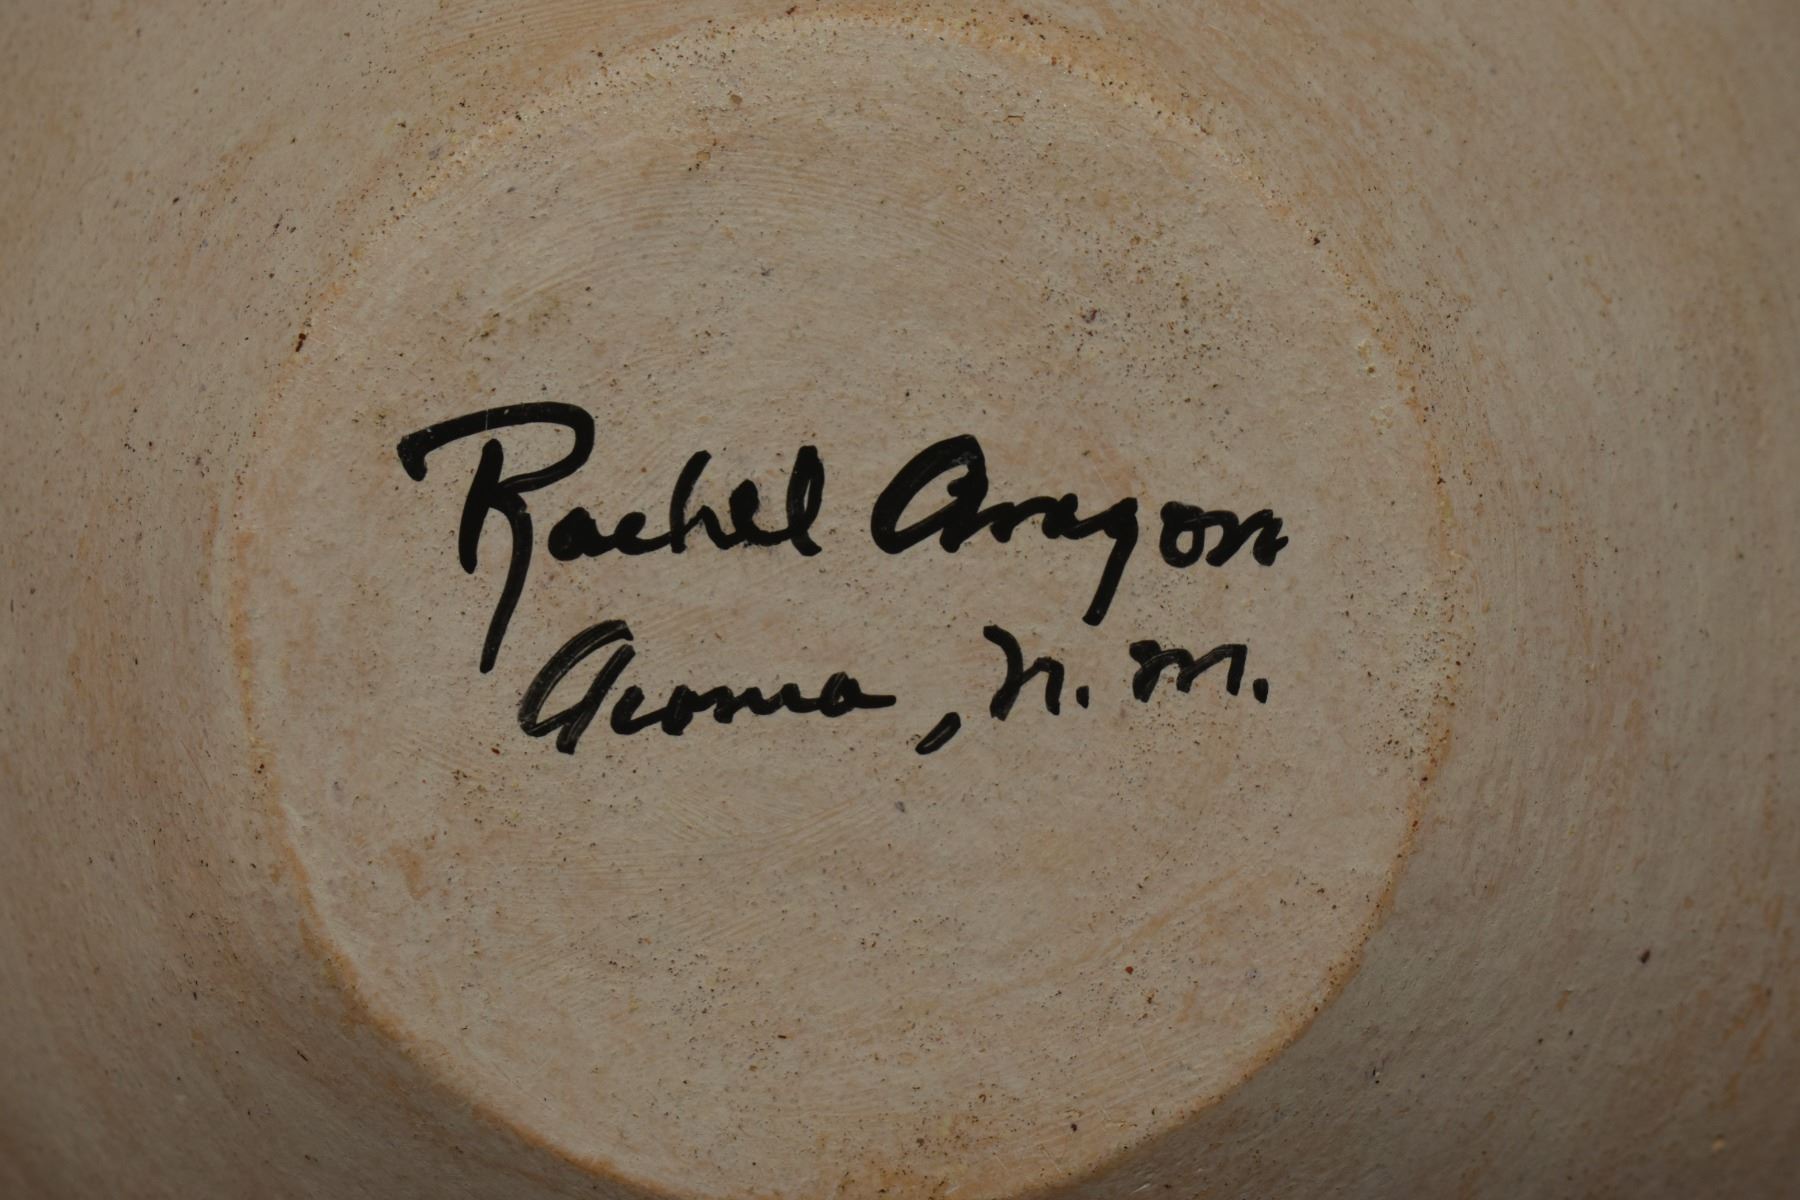 Rachel Aragon
Acoma, N.M.